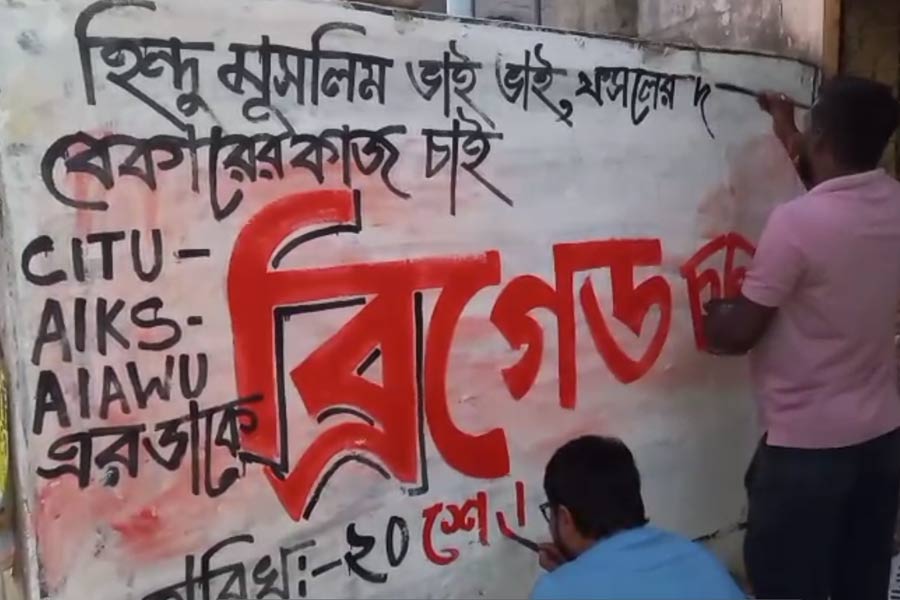 হিন্দু মুসলিম ভাই ভাই, ফসলের দ
বেকারের কাজ চাই
CITU-
AIKS-
AIAWU
এর ডাকে
ব্রিগেড চল
তারিখ:-২০ শে